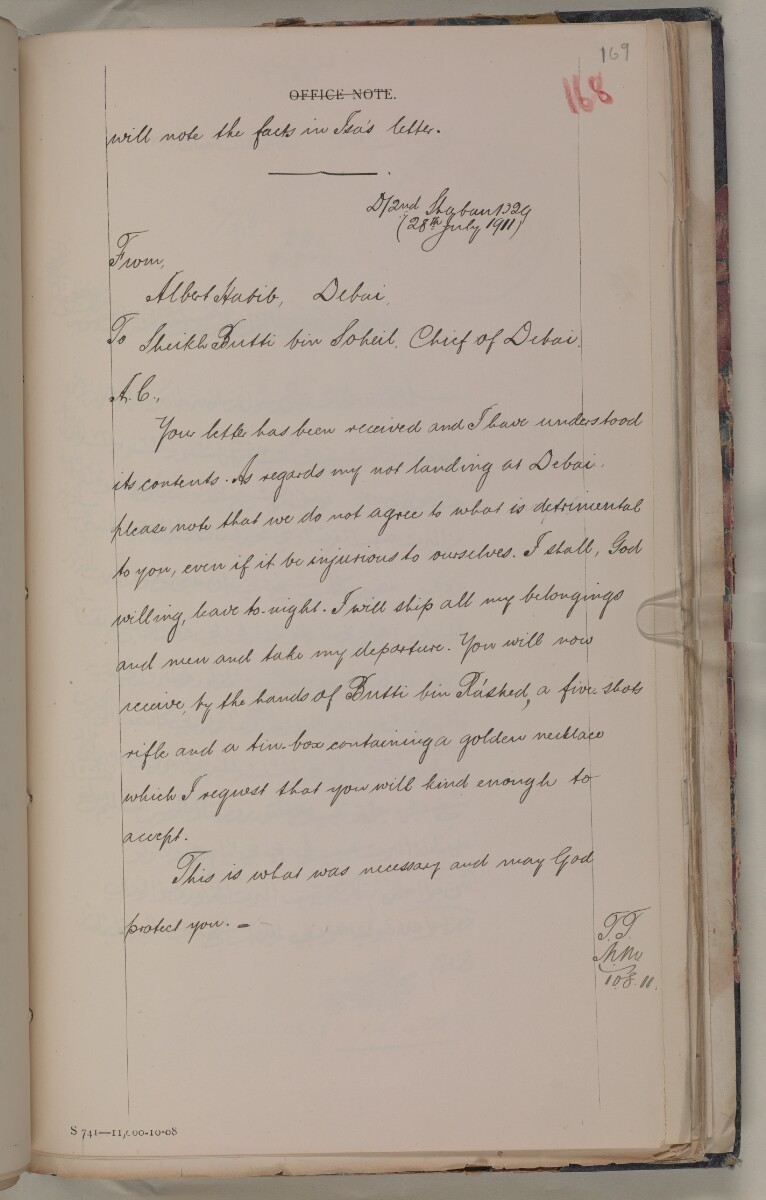 169
168
OFFICE NOTE.
will note the facts in Isa's letter.
D/2nd Shaban 1329
(28th July 1911)
From,
Albert Habib, Debai,
To Sheikh Butti bin Soheil, Chief of Debai.
A.C.,
Your letter has been received and I have understood
its contents. As regards my not landing at Debai,
please note that we do not agree to what is detrimental
to you, even if it be injurious to ourselves. I shall, God
willing, leave to-night. I will ship all my belongings
and men and take my departure. You will now
receive, by the hands of Butti bin Ráshed, a five shots
rifle and a tin-box containing a golden necklace
which I request that you will kind enough to
accept.
This is what was necessary and may God
protect you. —
T.T
10.8.11.
S 741—11,000-10-08